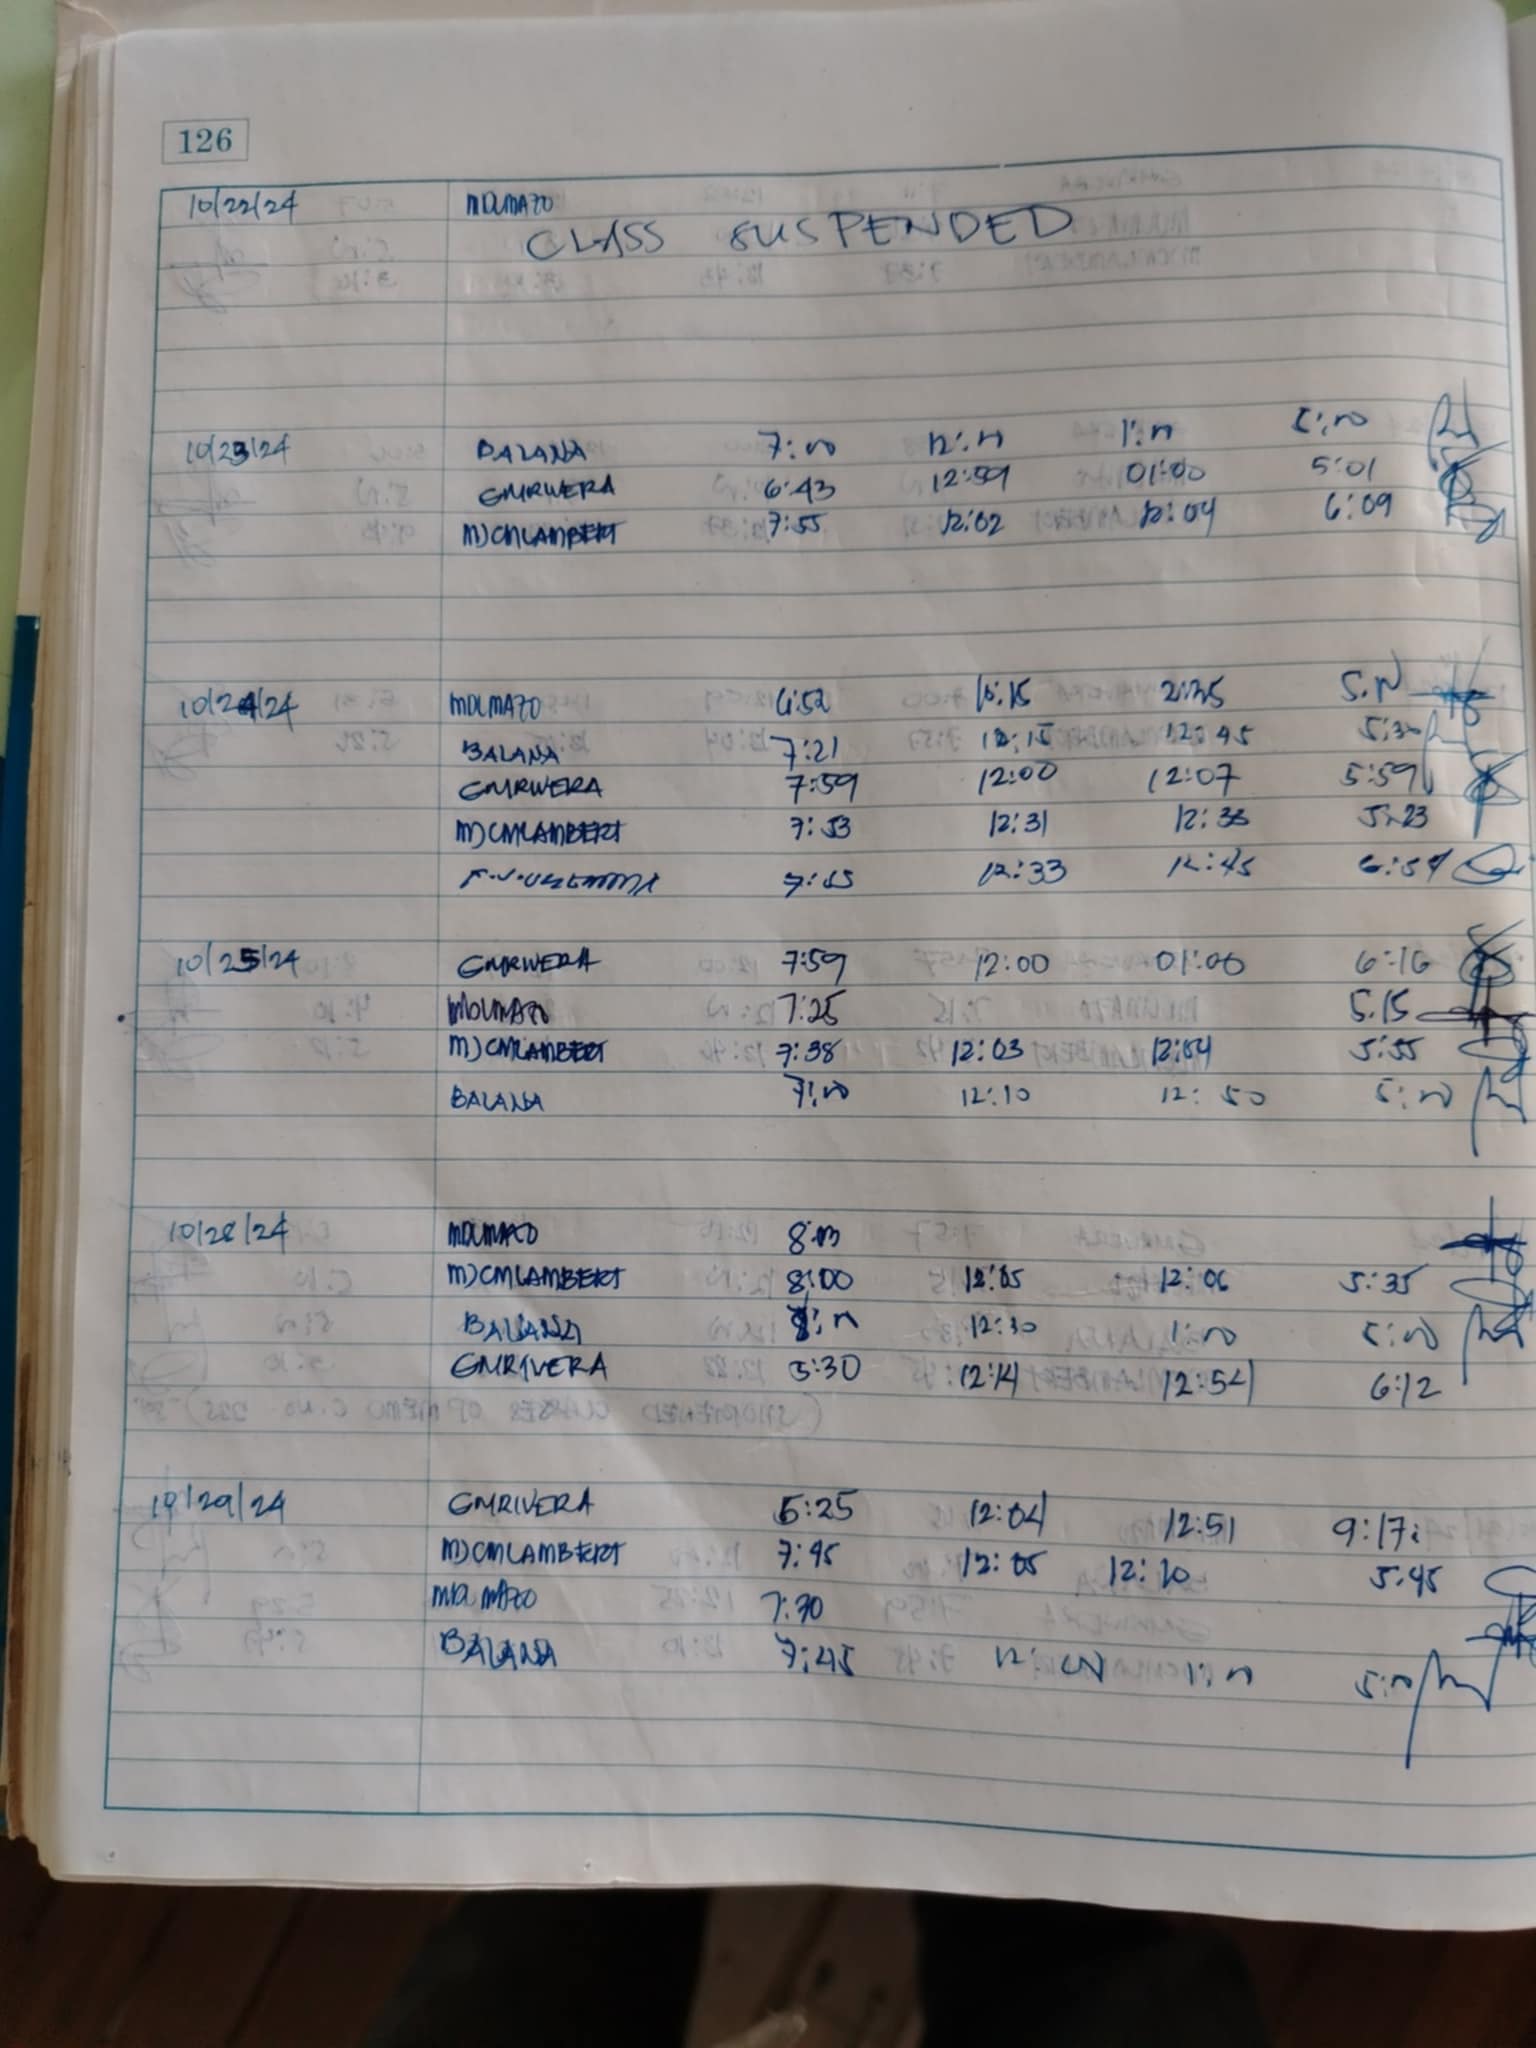 126
10/22/24 MDLMAZO
CLASS SUSPENDED
10/23/24 BALANA 7:00 12:00 1:00 5:00
GMRIVERA 6:43 12:59 01:00 5:01
MJCMLAMBERT 7:55 12:02 12:04 6:09
10/24/24 MDLMAZO 6:52 2:35
BALANA 7:21 12:15 12:45 5:30
GMRIVERA 7:59 12:00 12:07 5:59
MJCMLAMBERT 7:53 12:31 12:33 5:23
12:33 12:45
10/25/24 GMRIVERA 7:59 12:00 01:00 6:16
MDLMAZO 7:25 5.15
MJCMLAMBERT 7:38 12:03 12:04 5:55
BALANA 7:00 12:10 12:50 5:00
10/28/24 MDLMAZO 8:00
MJCMLAMBERT 8:00 12:05 12:06 5:35
BALANA 12:30 1:00 5:00
GMRIVERA 12:14 12:54 6:12
10/29/24 GMRIVERA 12:04 12:51 9:17
MJCMLAMBERT 7:45 12:05 12:10 5:45
MDLMAZO 7:30
BALANA 7:45 1:00 5:00